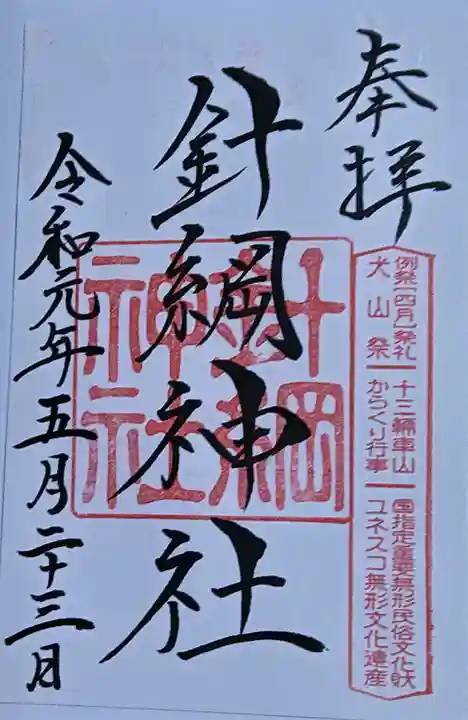 奉拝
例祭［四月］祭礼 十三輛車山 国指定重要無形民俗文化財
犬山祭 からくり行事 ユネスコ無形文化遺産
針綱神社
針綱
神社
令和元年五月二十三日